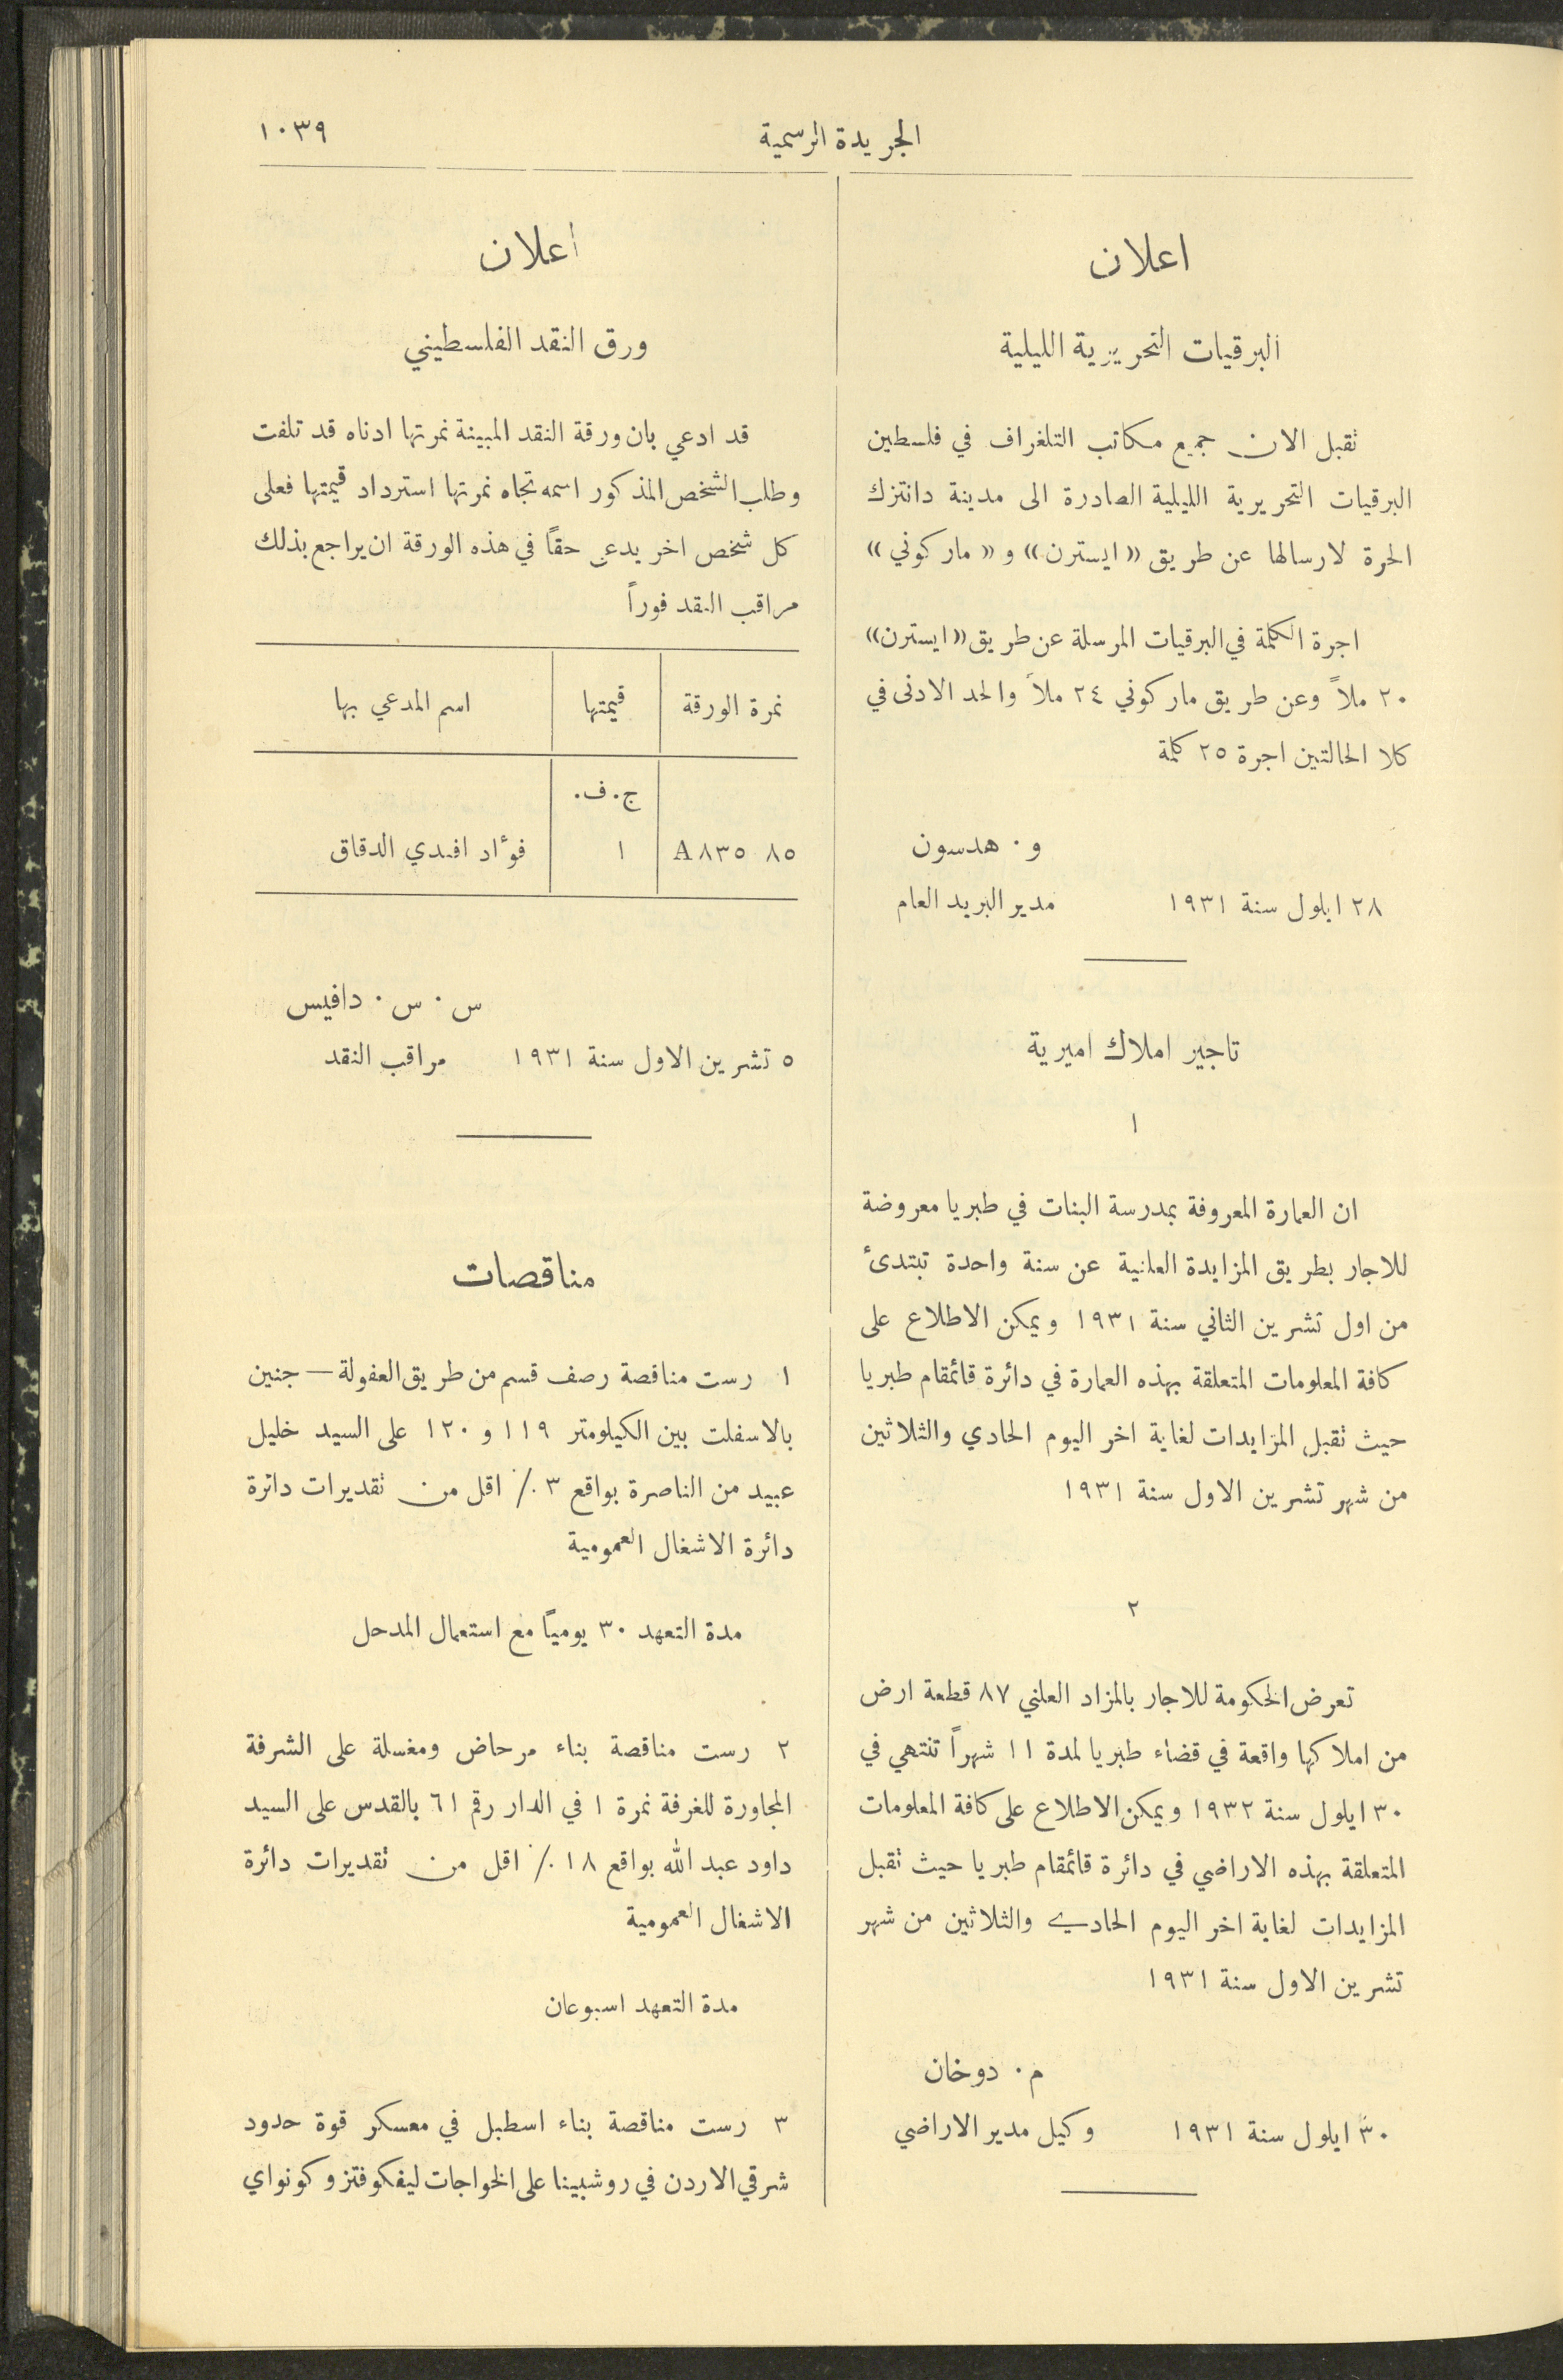 الجريدة الرسمية
١٠٣٩
اعلان
البرقيات التحريرية الليلية
تقبل الان جميع مكاتب التلغراف في فلسطين
البرقيات التحريرية الليلية الصادرة الى مدينة دانتزك
الحرة لارسالها عن طريق «ايسترن» و «ماركوني»
اجرة الكلمة في البرقيات المرسلة عن طريق «ايسترن»
٢٠ ملاً وعن طريق ماركوني ٢٤ ملاً والحد الادنى في
كلا الحالتين اجرة ٢٥ كلمة
و . هدسون
٢٨ ايلول سنة ١٩٣١ مدير البريد العام
تاجير املاك اميرية
١
ان العمارة المعروفة بمدرسة البنات في طبريا معروضة
للاجار بطريق المزايدة العلنية عن سنة واحدة تبتدئ
من اول تشرين الثاني سنة ١٩٣١ ويمكن الاطلاع على
كافة المعلومات المتعلقة بهذه العمارة في دائرة قائمقام طبريا
حيث تقبل المزايدات لغاية اخر اليوم الحادي والثلاثين
من شهر تشرين الاول سنة ١٩٣١
٢
تعرض الحكومة للاجار بالمزاد العلني ٨٧ قطعة ارض
من املاكها واقعة في قضاء طبريا لمدة ١١ شهراً تنتهي في
٣٠ ايلول سنة ١٩٣٢ ويمكن الاطلاع على كافة المعلومات
المتعلقة بهذه الاراضي في دائرة قائمقام طبريا حيث تقبل
المزايدات لغاية اخر اليوم الحادي والثلاثين من شهر
تشرين الاول سنة ١٩٣١
م . دوخان
٣٠ ايلول سنة ١٩٣١ وكيل مدير الاراضي
اعلان
ورق النقد الفلسطيني
قد ادعي بان ورقة النقد المبينة نمرتها ادناه قد تلفت
وطلب الشخص المذكور اسمه تجاه نمرتها استرداد قيمتها فعلى
كل شخص اخر يدعي حقاً في هذه الورقة ان يراجع بذلك
مراقب النقد فوراً
نمرة الورقة قيمتها اسم المدعي بها
ج . ف .
A ٨٣٥ ٠٨٥ ١ فؤاد افندي الدقاق
س . س . دافيس
٥ تشرين الاول سنة ١٩٣١ مراقب النقد
مناقصات
١ رست مناقصة رصف قسم من طريق العفولة — جنين
بالاسفلت بين الكيلومتر ١١٩ و ١٢٠ على السيد خليل
عبيد من الناصرة بواقع ٣ ٪ اقل من تقديرات دائرة
دائرة الاشغال العمومية
مدة التعهد ٣٠ يومياً مع استعمال المدحل
٢ رست مناقصة بناء مرحاض ومغسلة على الشرفة
المجاورة للغرفة نمرة ١ في الدار رقم ٦١ بالقدس على السيد
داود عبد الله بواقع ١٨ ٪ اقل من تقديرات دائرة
الاشغال العمومية
مدة التعهد اسبوعان
٣ رست مناقصة بناء اسطبل في معسكر قوة حدود
شرقي الاردن في روشبينا على الخواجات ليفكوفتز وكونواي